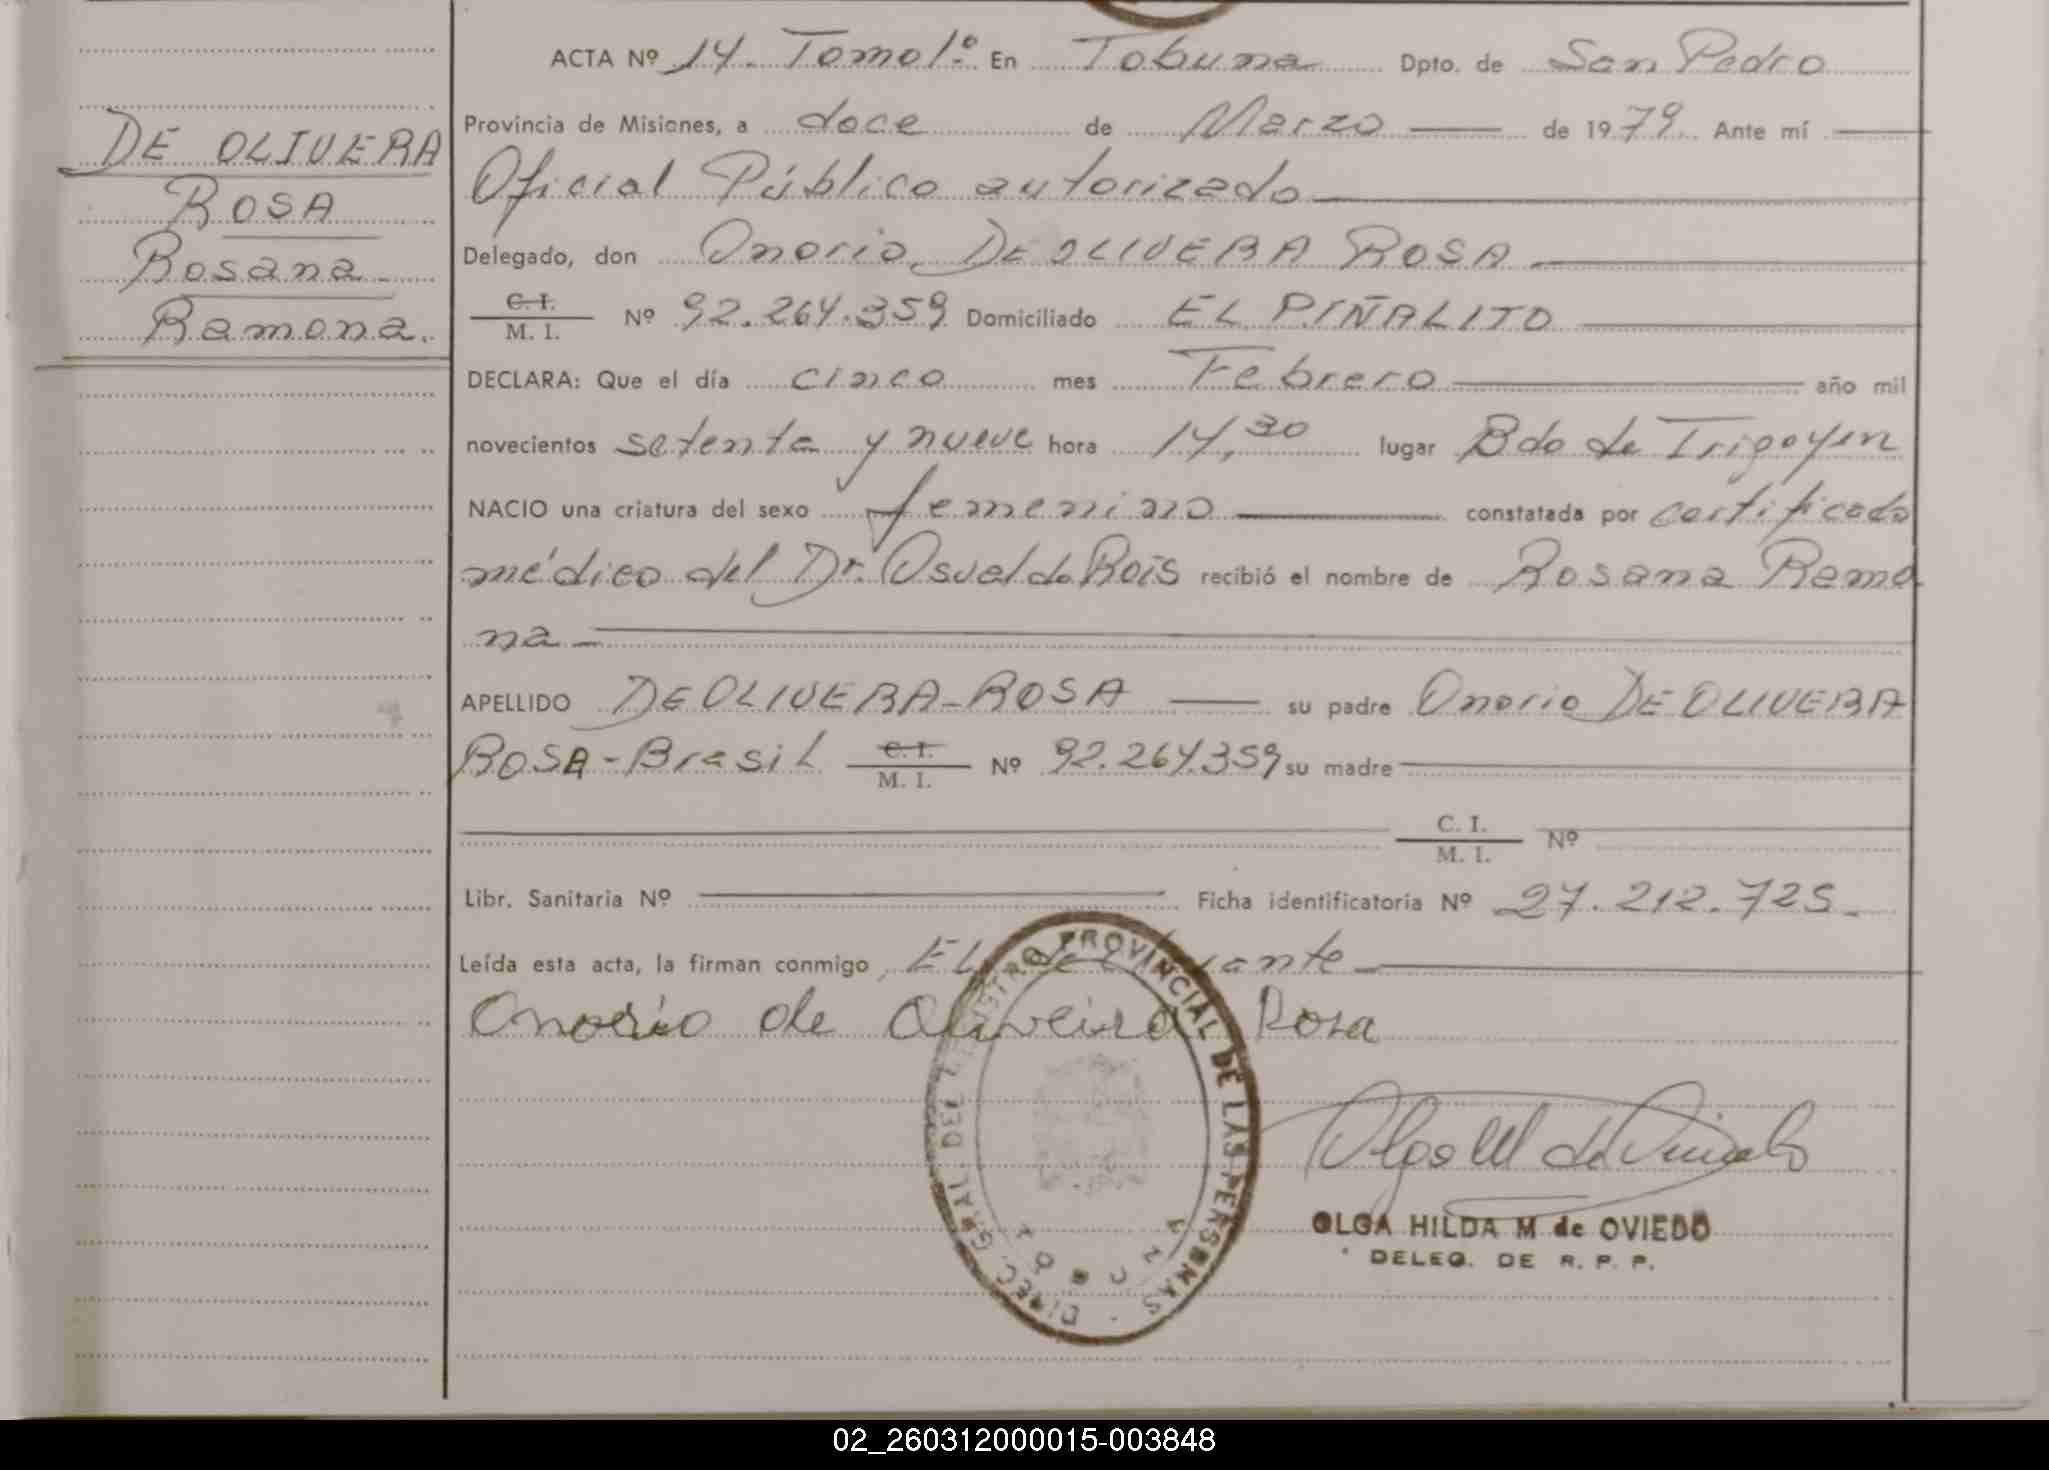 ACTA Nº 14. Tomo 1º. En Tobuna Dpto. de San Pedro
DE OLIVERA
ROSA
Rosana
Ramona.
Provincia de Misiones, a doce de Marzo de 1979. Ante mí
Oficial Público autorizado
Delegado, don Onorio DE OLIVERA ROSA
C. I.
M. I. Nº 92.264.359 Domiciliado EL PIÑALITO
DECLARA: Que el día cinco mes Febrero año mil
novecientos setenta y nueve hora 14,30 lugar Bdo de Irigoyen
NACIO una criatura del sexo femenino constatada por certificado
médico del Dr. Osvaldo Rois recibió el nombre de Rosana Ramo
na
APELLIDO DE OLIVERA-ROSA su padre Onorio DE OLIVERA
ROSA-Brasil C. I.
M. I. Nº 92.264.359 su madre
C. I.
M. I. Nº
Libr. Sanitaria Nº Ficha identificatoria Nº 27.212.725.
Leída esta acta, la firman conmigo, EL declarante
Onorio de Oliveira Rosa
DIREC. GRAL. DEL REGISTRO PROVINCIAL DE LAS PERSONAS
TOBUNA
OLGA HILDA M de OVIEDO
DELEG. DE R. P. P.
02_260312000015-003848